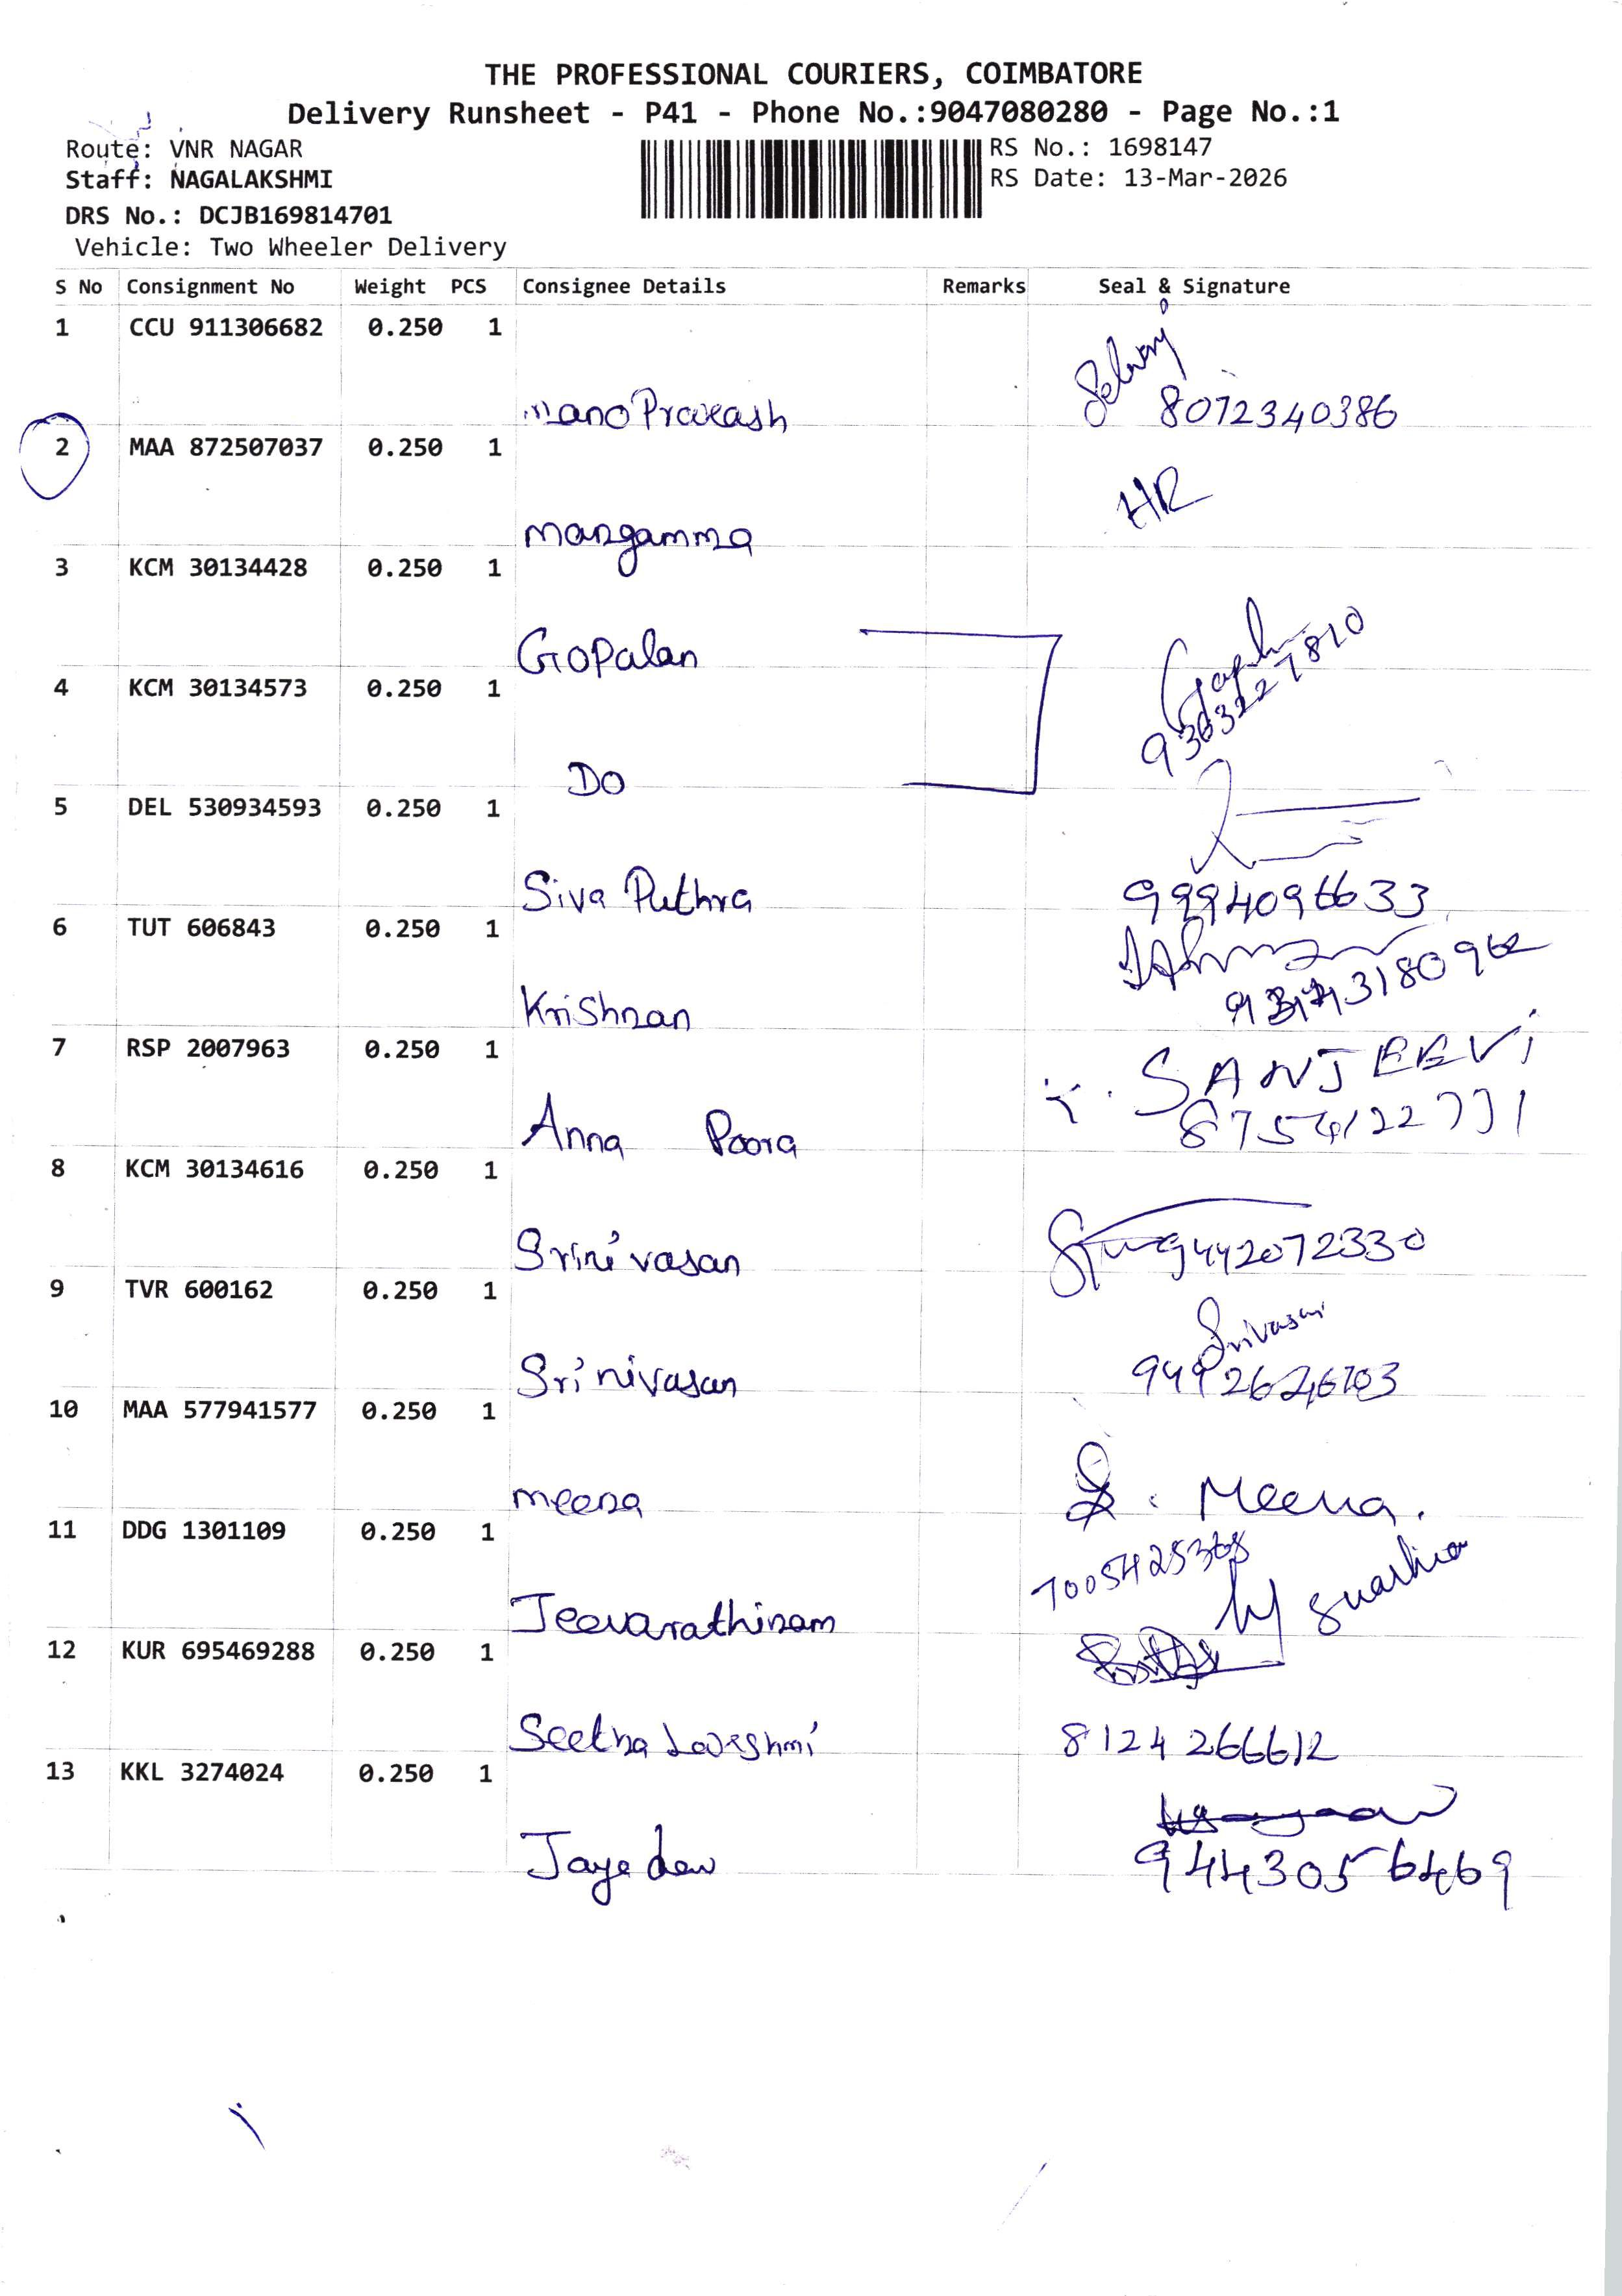 THE PROFESSIONAL COURIERS, COIMBATORE
Delivery Runsheet - P41 - Phone No.:9047080280 - Page No.:1
Route: VNR NAGAR
RS No.: 1698147
Staff: NAGALAKSHMI
RS Date: 13-Mar-2026
DRS No.: DCJB169814701
Vehicle: Two Wheeler Delivery
S No Consignment No Weight PCS Consignee Details Remarks Seal & Signature
1 CCU 911306682 0.250 1
Mano Prakash 8072340386
2 MAA 872507037 0.250 1
HR
Mangamma
3 KCM 30134428 0.250 1
Gopalan
4 KCM 30134573 0.250 1
Do
5 DEL 530934593 0.250 1
Siva Puthra 9994096633
6 TUT 606843 0.250 1
Krishnan
7 RSP 2007963 0.250 1
SANJEEVi
Anna Poora
8 KCM 30134616 0.250 1
Srinivasan 9442072330
9 TVR 600162 0.250 1
Srinivasan
10 MAA 577941577 0.250 1
Meena Meena.
11 DDG 1301109 0.250 1
Jeevarathinam
12 KUR 695469288 0.250 1
Seetha Lakshmi 8124266612
13 KKL 3274024 0.250 1
Jayadev 9443056469